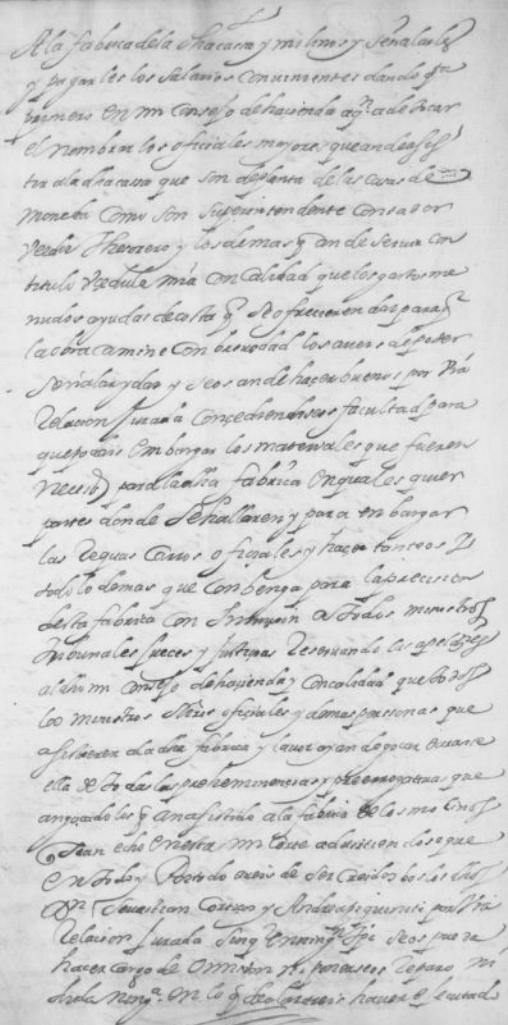 A la fabrica de la dha cassa y molinos y señalarles
y pagarles los salarios convinientes dando qta
primero en mi Consejo de hacienda a qn a de tocar
el nombrar los ofiçiales mayores que an de asis
tir a la dha cassa que son de planta de las casas de
moneda como son superintendente contador
Veedor Thesorero y los demas q an de servir con
titulo y çedula mia con calidad que los gastos me
nudos ayudas de costa q se ofreçieren dar para q
la obra camine con brevedad los aveis de poder
señalar y dar y se os an de haçer buenos por Vra
Relaçion Jurada conçediendoseos facultad para
que podais embargar los materiales que fueren
neçesos para la dha fabrica en quales quier
partes donde se hallaren y para embargar
las Reguas carros ofiçiales y haçer tanteos y
todo lo demas que convenga para la preçission
desta fabrica con Inivicion a todos ministros
tribunales Jueçes y Justiçias Reservando las apelaçes
al dho mi consejo de haçienda y con calidad que todos
los ministros ofiçiales y demas personas que
asistieren a la dha fabrica y lavor ayan de goçar durante
ella de todas las preheminençias y prerrogativas que
an goçado los q an asistido a la fabrica de los molinos
q se an echo en esta mi Corte advirtiendose que
en todo y Por todo aveis de ser creidos bos los dhos
Don Sevastian Cortiço y por Vra
Relaçion Jurada sin q en ningn tpo se os pueda
haçer cargo de omission ni poneros Reparo ni
duda ninga en lo q declarareis haver executado